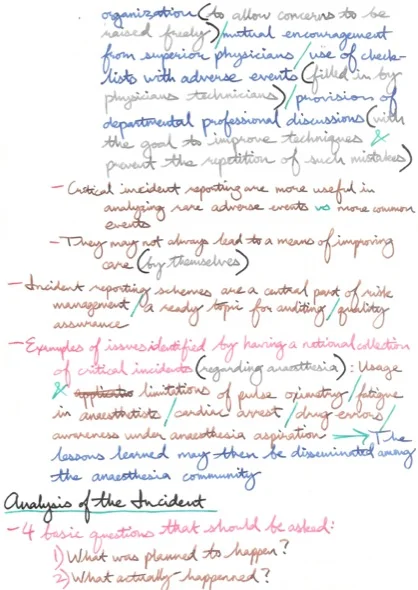 organization (to allow concerns to be
raised freely) / mutual encouragement
from superior physicians / use of check-
lists with adverse events (filled in by
physicians technicians) / provision of
departmental professional discussions (with
the goal to improve techniques &
prevent the repetition of such mistakes)
- Critical incident reporting are more useful in
analyzing rare adverse events vs more common
events
- They may not always lead to a means of improving
care (by themselves)
- Incident reporting schemes are a central part of risk
management / a ready topic for auditing / quality
assurance
- Examples of issues identified by having a national collection
of critical incidents (regarding anaesthesia): Usage
& limitations of pulse oximetry / fatigue
in anaesthetists / cardiac arrest / drug errors /
awareness under anaesthesia aspiration → The
lessons learned may then be disseminated among
the anaesthesia community
Analysis of the Incident
- 4 basic questions that should be asked:
1) What was planned to happen?
2) What actually happenned?